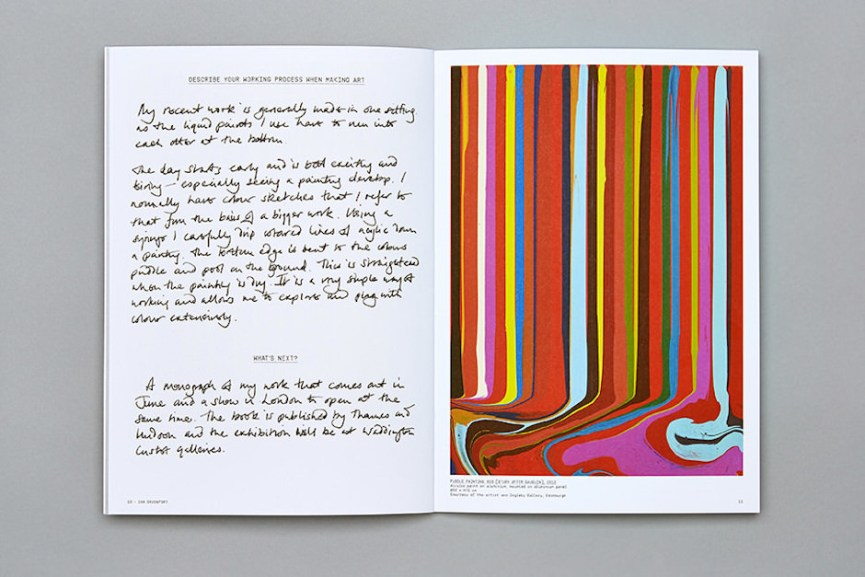 DESCRIBE YOUR WORKING PROCESS WHEN MAKING ART
My recent work is generally made in one sitting
as the liquid paints I use have to run into
each other at the bottom
The day starts early and is both exciting and
tiring – especially seeing a painting develop. I
normally have colour sketches that I refer to
that form the basis of a bigger work. Using a
syringe I carefully drip coloured lines of acrylic down
a painting. The bottom edge is bent so the colours
puddle and pool on the ground. This is straightened
when the painting is dry. It is a very simple way of
working and allows me to explore and play with
colour extensively.
WHAT'S NEXT?
A monograph of my work that comes out in
June and a show in London to open at the
same time. The book is published by Thames and
Hudson and the exhibition will be at Waddington
Custot galleries.
IAN DAVENPORT
PUDDLE PAINTING: RED (STUDY AFTER
Acrylic paint on aluminium, mounted on aluminium panel
Courtesy of the artist and Ingleby Gallery, Edinburgh